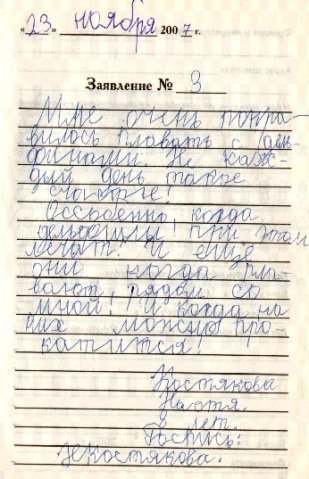 «23» ноября 2007 г.
Заявление № 3
Мне очень понра-
вилось плавать с дель-
финами. Не каж-
дый день такое
счастье!
Оссобенно, когда
дельфины при этом
лечат! И ещё
они когда пла-
вают рядом со
мной! И когда на
них можно про-
катится!
Костякова
Настя.
8 лет.
Роспись:
НКостякова.